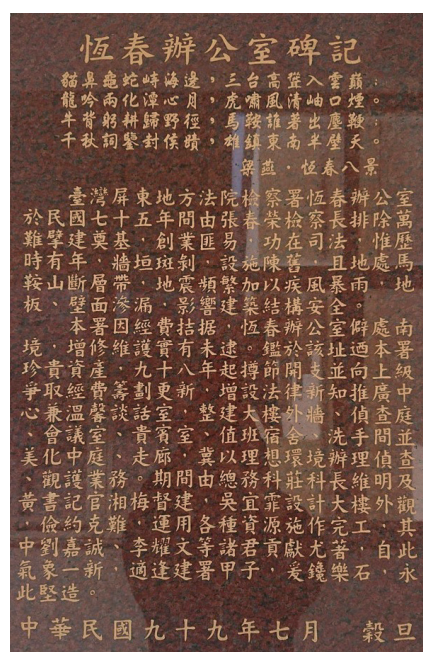 恆春辦公室碑記
貓鼻龜蛇峙海邊，三台高聳入雲巔。
龍吟雨化潭心月，虎嘯風清岫口煙。
牛背躬耕歸野徑，馬鞍誰著出塵鞭。
千秋詞鑒封侯蹟，雄鎮東南半壁天。
梁燕，恆春八景
臺灣屏東地方法院檢察署恆春辦公室
於民國七十五年間由張春榮檢察長排除萬
難擘建奠基創業匪易，功在司法，惟歷
時有年，牆垣斑剝　設施陳舊，且地處馬
鞍山斷層帶，地震頻繫加以疾風暴雨，地
板、壁面滲漏，影響建築結構安全。
本署因經費拮据，恆春辦公室僻處南
境，增修維護實有未逮。鑑於該址迺本署
珍貴資產，九十八年起撙節開支並向上級
爭取經費籌劃更新，增設法律新知推廣中
心、溫馨談話室、整建大樓外牆、偵查庭
兼會議室、貴賓室、值班宿舍、洗手間並
美化中庭、走廊，冀以理想環境辦理偵查
觀護業務。期間由總務科莊科長維明及
黃書記官湘梅督建，吳宜霏設計大樓外觀
一儉約克難，運用各種資源施作完工，其
中劉嘉誠、李耀文等諸君子貢獻尤者，自此
氣象一新。適逢建署甲子，爰鐫樂石，永
此堅造
中華民國九十九年七月　穀旦